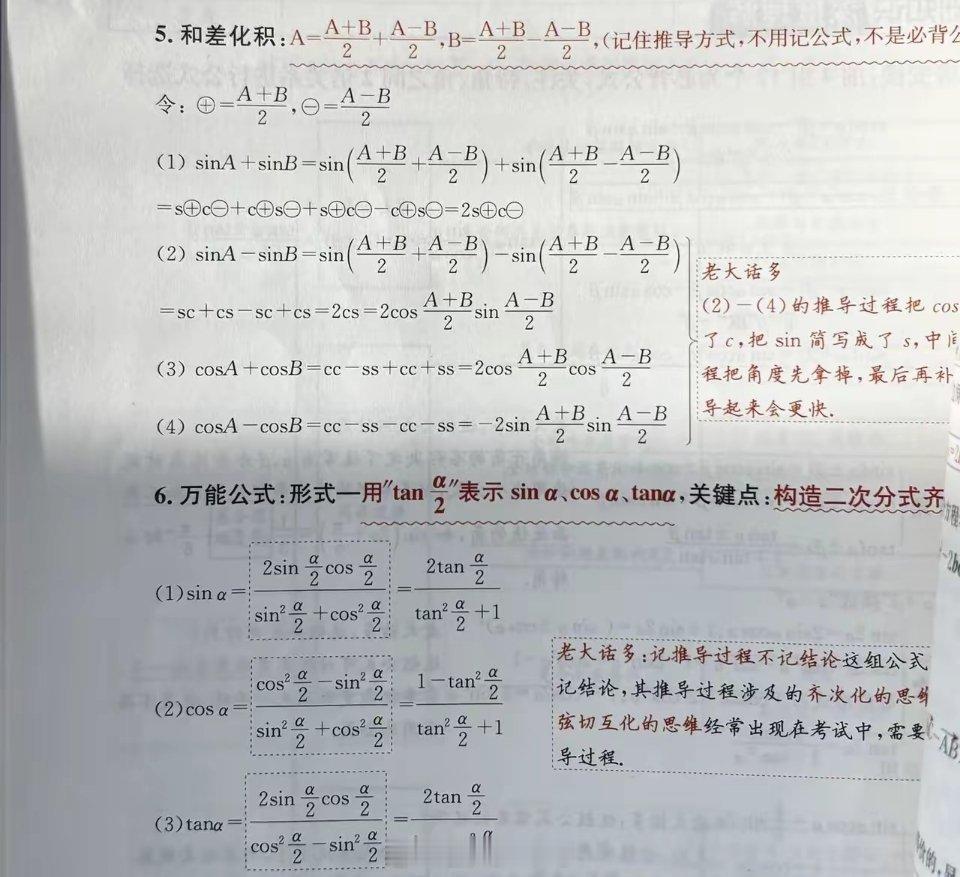 5. 和差化积:A=\frac{A+B}{2}+\frac{A-B}{2},B=\frac{A+B}{2}-\frac{A-B}{2},(记住推导方式,不用记公式,不是必背公
令:⊕=\frac{A+B}{2},⊖=\frac{A-B}{2}
(1) sinA+sinB=sin(\frac{A+B}{2}+\frac{A-B}{2})+sin(\frac{A+B}{2}-\frac{A-B}{2})
=s⊕c⊖+c⊕s⊖+s⊕c⊖-c⊕s⊖=2s⊕c⊖
(2) sinA-sinB=sin(\frac{A+B}{2}+\frac{A-B}{2})-sin(\frac{A+B}{2}-\frac{A-B}{2})
=sc+cs-sc+cs=2cs=2cos\frac{A+B}{2}sin\frac{A-B}{2}
(3) cosA+cosB=cc-ss+cc+ss=2cos\frac{A+B}{2}cos\frac{A-B}{2}
(4) cosA-cosB=cc-ss-cc-ss=-2sin\frac{A+B}{2}sin\frac{A-B}{2}
老大话多
(2)-(4)的推导过程把 cos
了 c,把 sin 简写成了 s,中间
程把角度先拿掉,最后再补
导起来会更快.
6. 万能公式:形式—用"tan\frac{α}{2}"表示 sin α、cos α、tanα,关键点:构造二次分式齐
(1)sin α=\frac{2sin\frac{α}{2}cos\frac{α}{2}}{sin²\frac{α}{2}+cos²\frac{α}{2}}=\frac{2tan\frac{α}{2}}{tan²\frac{α}{2}+1}
(2)cos α=\frac{cos²\frac{α}{2}-sin²\frac{α}{2}}{sin²\frac{α}{2}+cos²\frac{α}{2}}=\frac{1-tan²\frac{α}{2}}{tan²\frac{α}{2}+1}
(3)tanα=\frac{2sin\frac{α}{2}cos\frac{α}{2}}{cos²\frac{α}{2}-sin²\frac{α}{2}}=\frac{2tan\frac{α}{2}}{}
老大话多:记推导过程不记结论这组公式
记结论,其推导过程涉及的齐次化的思维
弦切互化的思维经常出现在考试中,需要
导过程.